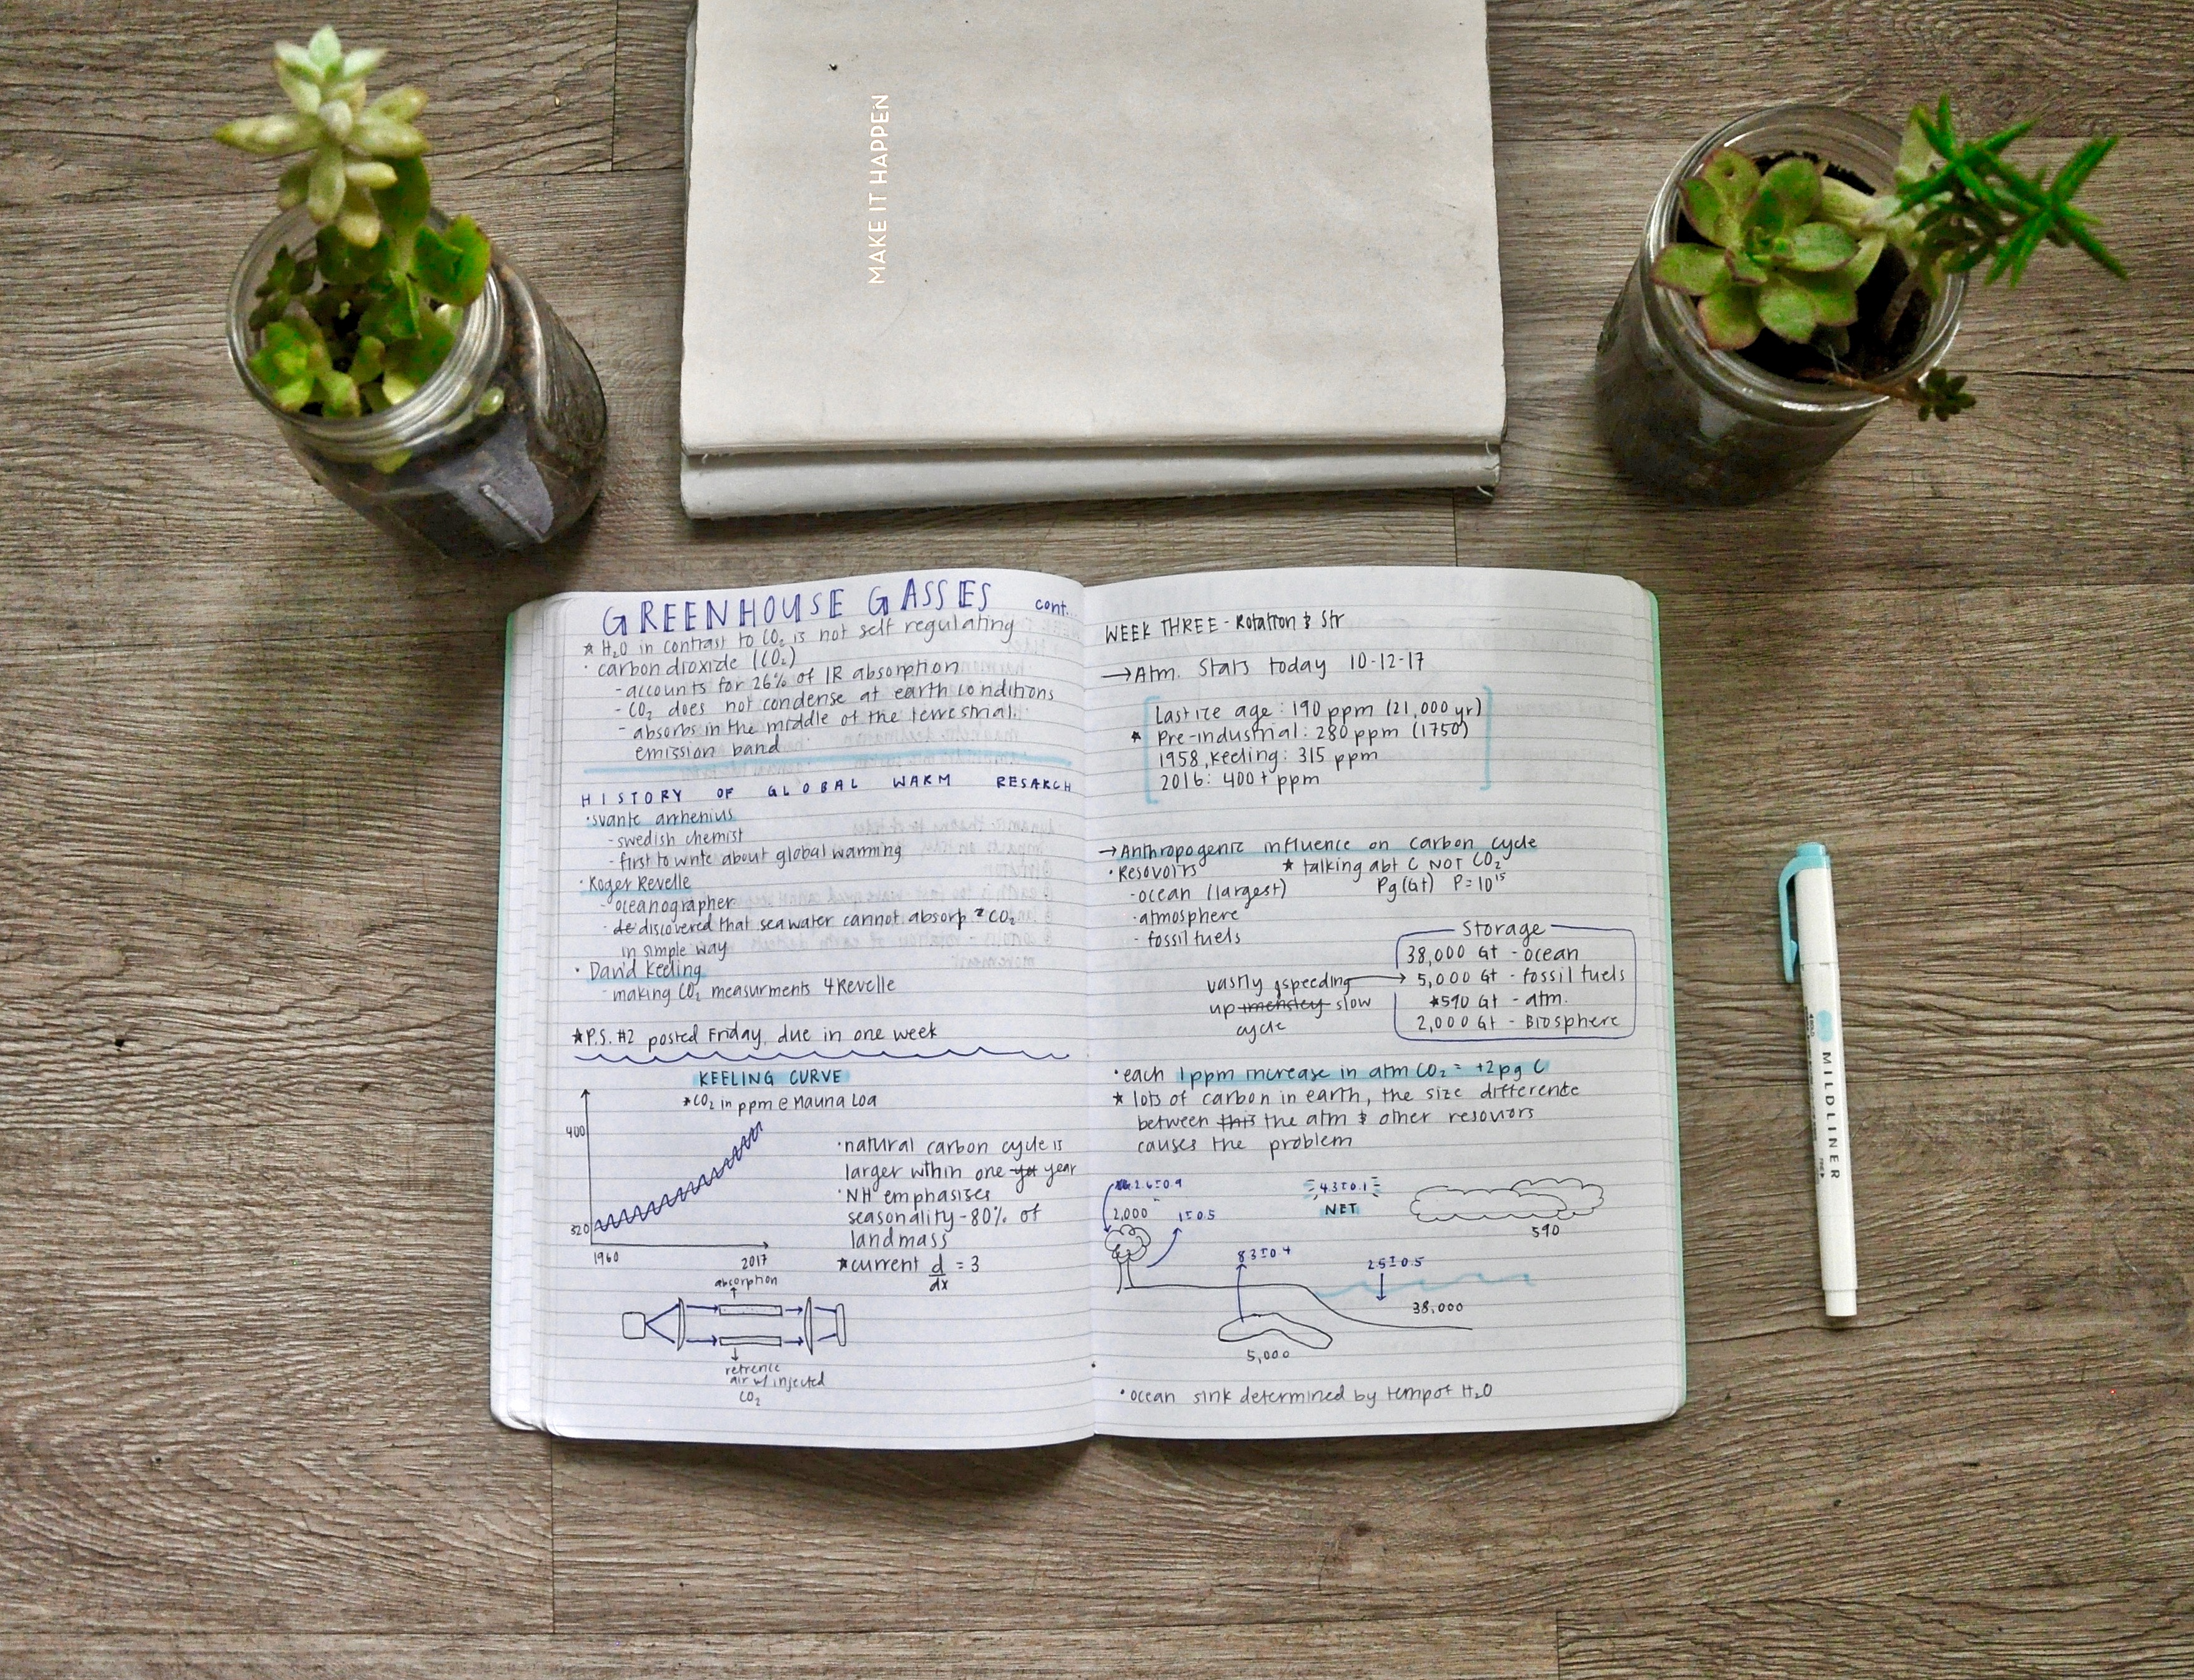 MAKE IT HAPPEN
GREENHOUSE GASSES cont...
* H₂O in contrast to CO₂ is not self regulating
· carbon dioxide (CO₂)
- accounts for 26% of IR absorption
- CO₂ does not condense at earth conditions
- absorbs in the middle of the terrestrial
emission band
HISTORY OF GLOBAL WARM RESARCH
· svante arrhenius
- swedish chemist
- first to write about global warming
· Roger Revelle
- oceanographer
- discovered that seawater cannot absorp CO₂
in simple way
· David Keeling
- making CO₂ measurments 4 Revelle
* P.S. #2 posted Friday, due in one week
KEELING CURVE
* CO₂ in ppm @ Mauna Loa
400
320
1960 2017
· natural carbon cycle is
larger within one year
· NH emphasises
seasonality - 80% of
landmass
* current d/dx = 3
absorption
refrence
air w/ injected
CO₂
WEEK THREE - Rotation & Str
→ Atm. Stats today 10-12-17
Last ice age: 190 ppm (21,000 yr)
* Pre-industrial: 280 ppm (1750)
1958, Keeling: 315 ppm
2016: 400+ ppm
→ Anthropogenic influence on carbon cycle
· Resovoirs * talking abt C NOT CO₂
- ocean (largest) Pg (Gt) P = 10¹⁵
- atmosphere
- fossil fuels
Storage
38,000 Gt - ocean
vastly speeding → 5,000 Gt - fossil fuels
up slow *590 Gt - atm.
cycle 2,000 Gt - Biosphere
· each 1ppm increase in atm CO₂ = +2pg C
* lots of carbon in earth, the size difference
between the atm & other resovoirs
causes the problem
2.6±0.9 4.3±0.1
2,000 1±0.5 NET
590
8.3±0.4 2.5±0.5
38,000
5,000
· ocean sink determined by temp of H₂O
MILDLINER